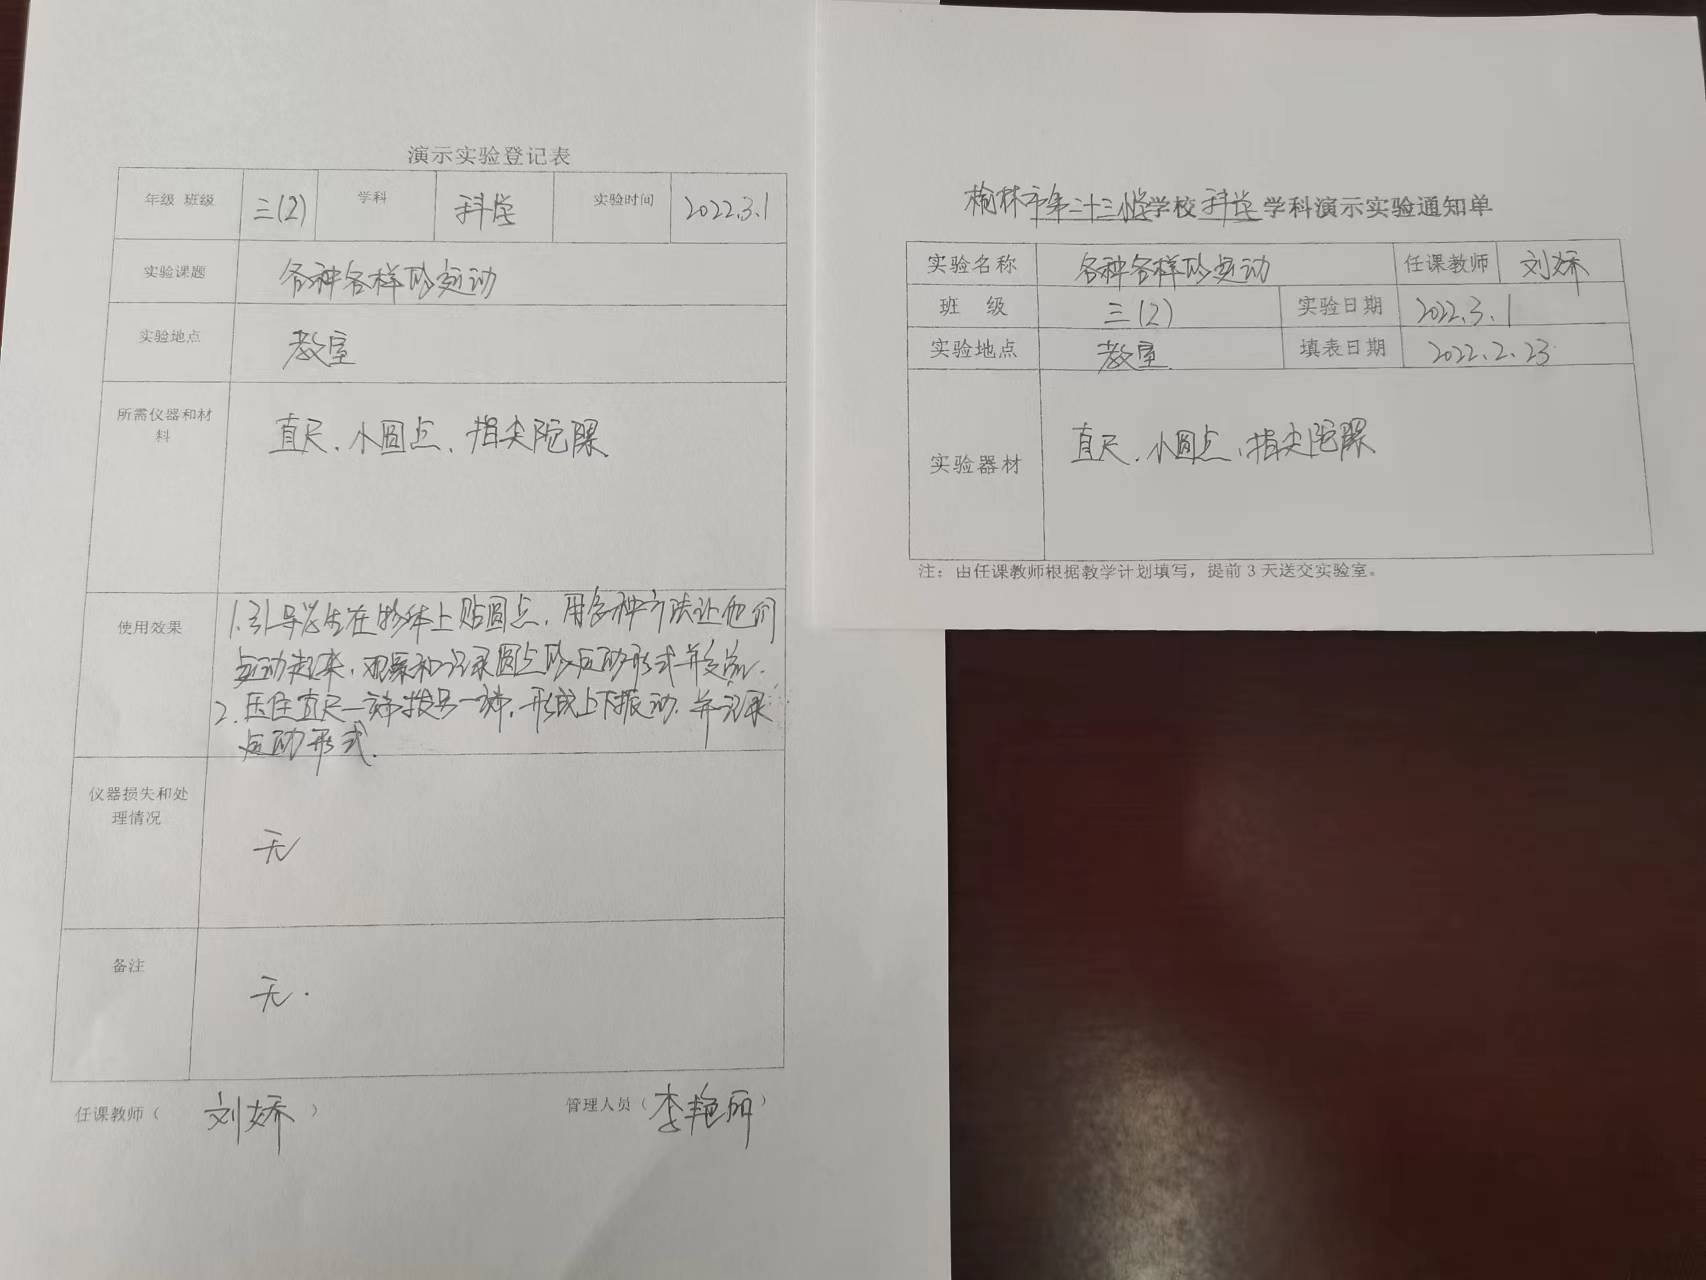 演示实验登记表
年级 班级 三(2) 学科 科学 实验时间 2022.3.1
实验课题 各种各样的运动
实验地点 教室
所需仪器和材
料
直尺、小圆点、指尖陀螺
使用效果
1.引导学生在物体上贴圆点,用各种方法让他们
运动起来,观察和记录圆点的运动形式并交流.
2.压住直尺一端拨另一端,形成上下振动,并记录
运动形式.
仪器损失和处
理情况
无
备注
无.
任课教师( 刘娇 ) 管理人员( 李艳丽 )
榆林市第二十三小学学校科学学科演示实验通知单
实验名称 各种各样的运动 任课教师 刘娇
班 级 三(2) 实验日期 2022.3.1
实验地点 教室. 填表日期 2022.2.23
实验器材 直尺、小圆点、指尖陀螺
注:由任课教师根据教学计划填写,提前3天送交实验室。